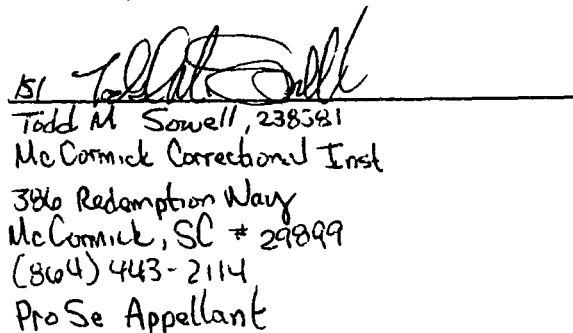 /s/
Todd M Sowell, 238581
McCormick Correctional Inst
386 Redemption Way
McCormick, SC # 29899
(864) 443-2114
Pro Se Appellant